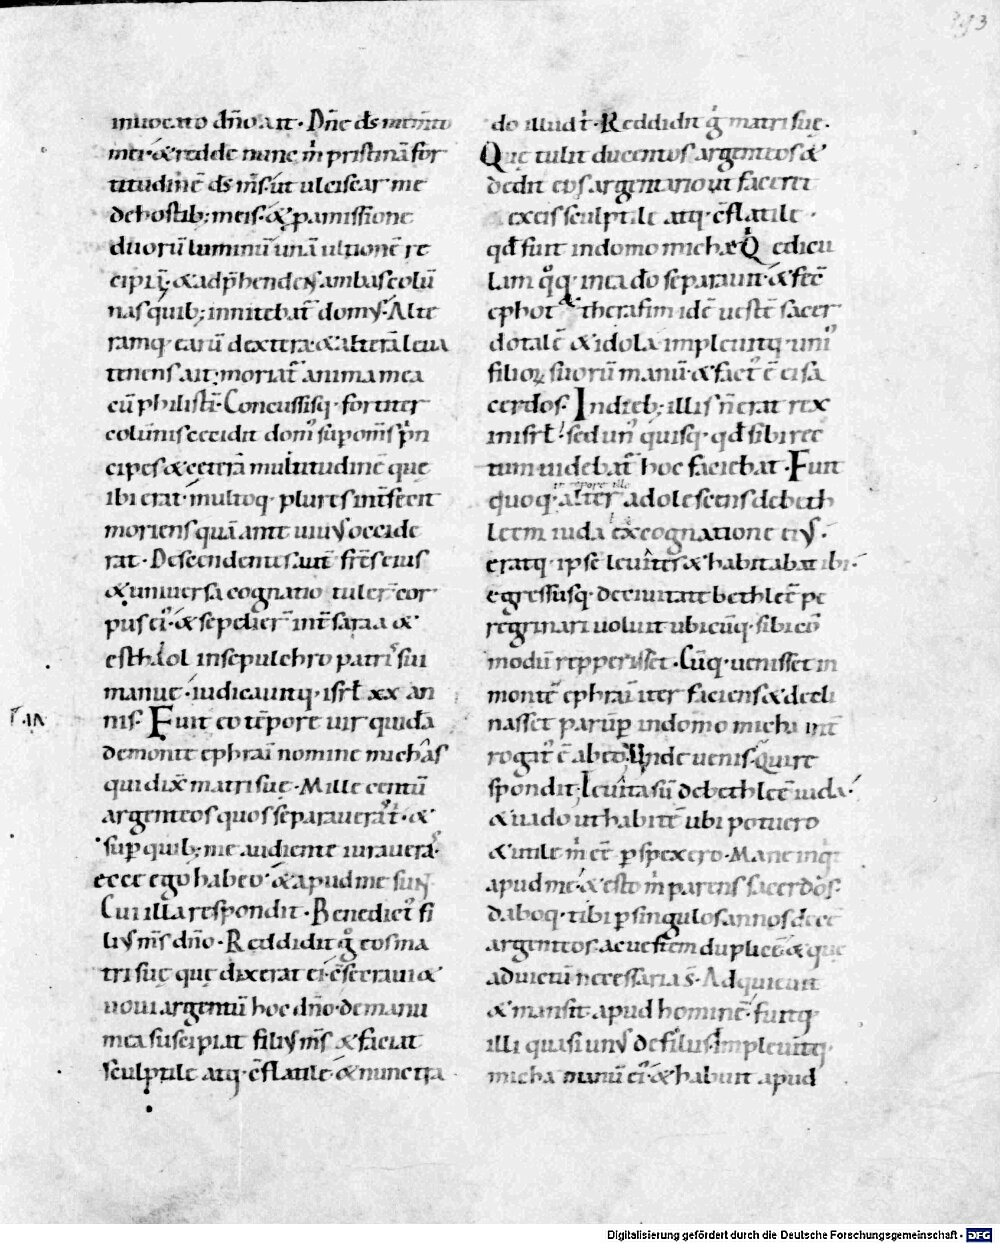 393
inuocato dño ait· Dñe ds̄ mem̄to
mei·& redde nunc m̄ pristinā for
titudinē ds̄ m̄s·ut ulciscar me
dehostib; meis·& p amissione
duorū luminū unā ultionē re
cipiā;·&adp̄hendens ambas colū
nas quib; innitebat̄ domꝰ·Alte
ramq· earū dextera·&alterā leua
tenens ait; moriat̄ anima mea
cū philistī·Concussisq· fortiter
colūnis cecidit domꝰ sup om̄s p̄n
cipes &ceterā multitudinē quę
ibi erat·multoq· plures int̄fecit
moriens quā ante uiuꝰ occide
rat·Descendentes aut̄ fr̄s eius
&uniuersa cognatio tuler̄ cor
pus eiꝰ·& sepelier̄ int̄ saraa &
esthaol insepulchro patrꝭ sui
manue·iudicauitq· isrł xx an
nis·Fuit eo tēpore uir quidā
demonte ephraī nomine michas
qui dix̄ matri suę·Mille centū
argenteos quos separauerat̄·&
sup quib; me audiente iurauera·
ecce ego habeo·& apud me suɴ·
Cui illa respondit·Benedictꝰ fi
liꝰ m̄s dño·Reddidit g̊ eos ma
tri suę quę dixerat ei·c̄secraui &
uoui argentū hoc dño·demanu
mea suscipiat filiꝰ m̄s & faciat
sculptile atq· c̄flatile·& nunc tra
do illud t̊·Reddidit g̊ matri suę·
Quę tulit ducentos argenteos &
dedit eos argentario ut faceret
exeis sculptile atq· c̄flatile·
qđ fuit indomo michę Q̊ ędicu
lam q̊q· inea do separauit·& fec̄
ephot & therafim idē uestē sacer
dotalē & idola·impleuitq· uniꝰ
filioꝝ suorū manū·& factꝰ ē ei sa
cerdos·Indieb; illis n̄ erat rex
inisrł·sed unꝰ quisq· qđ sibi rec
tum uidebat̄ hoc faciebat·Fuit
quoq· alter adolescens debeth
leem iuda excognatione eiꝰ·
eratq· ipse leuites & habitabat ibi·
egressusq· deciuitate bethleē pe
regrinari uoluit ubicūq· sibi cō
modū repperisset·Cūq· uenisset in
montē ephraī iter faciens & decli
nasset parūp indomo micha int̄
rogatꝰ ē abeo Unde uenis·Qui re
spondit·Leuita sū debethleē iuda·
& uado ut habitē ubi potuero
& utile m̄ ēē pspexero·Mane inq̇t
apud me·& esto m̄ parens sacerdos·
daboq· tibi psingulos annos decē
argenteos·ac uestem duplicē & quę
aduictū necessaria s̄·Adquieuit
& mansit apud hominē·fuitq·
illi quasi unꝰ defiliis·Impleuitq·
micha manū eiꝰ·& habuit apud
Digitalisierung gefördert durch die Deutsche Forschungsgemeinschaft - DFG